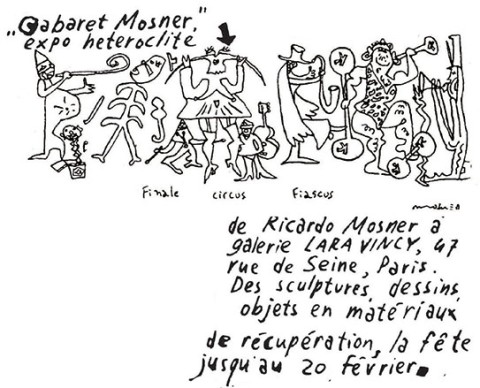 "Cabaret Mosner,"
expo hétéroclite
Finale circus Fiascus
de Ricardo Mosner à
galerie LARA VINCY, 47
rue de Seine, Paris.
Des sculptures, dessins,
objets en matériaux
de récupération, la fête
jusqu'au 20 février.